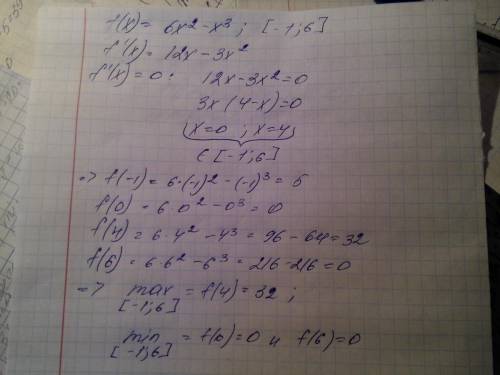 f(x) = 6x² - x³ ; [-1; 6]
f'(x) = 12x - 3x²
f'(x) = 0 : 12x - 3x² = 0
3x (4 - x) = 0
x = 0 ; x = 4
∈ [-1; 6]
=> f(-1) = 6·(-1)² - (-1)³ = 5
f(0) = 6·0² - 0³ = 0
f(4) = 6·4² - 4³ = 96 - 64 = 32
f(6) = 6·6² - 6³ = 216 - 216 = 0
=> max = f(4) = 32 ;
[-1; 6]
min = f(0) = 0 и f(6) = 0
[-1; 6]